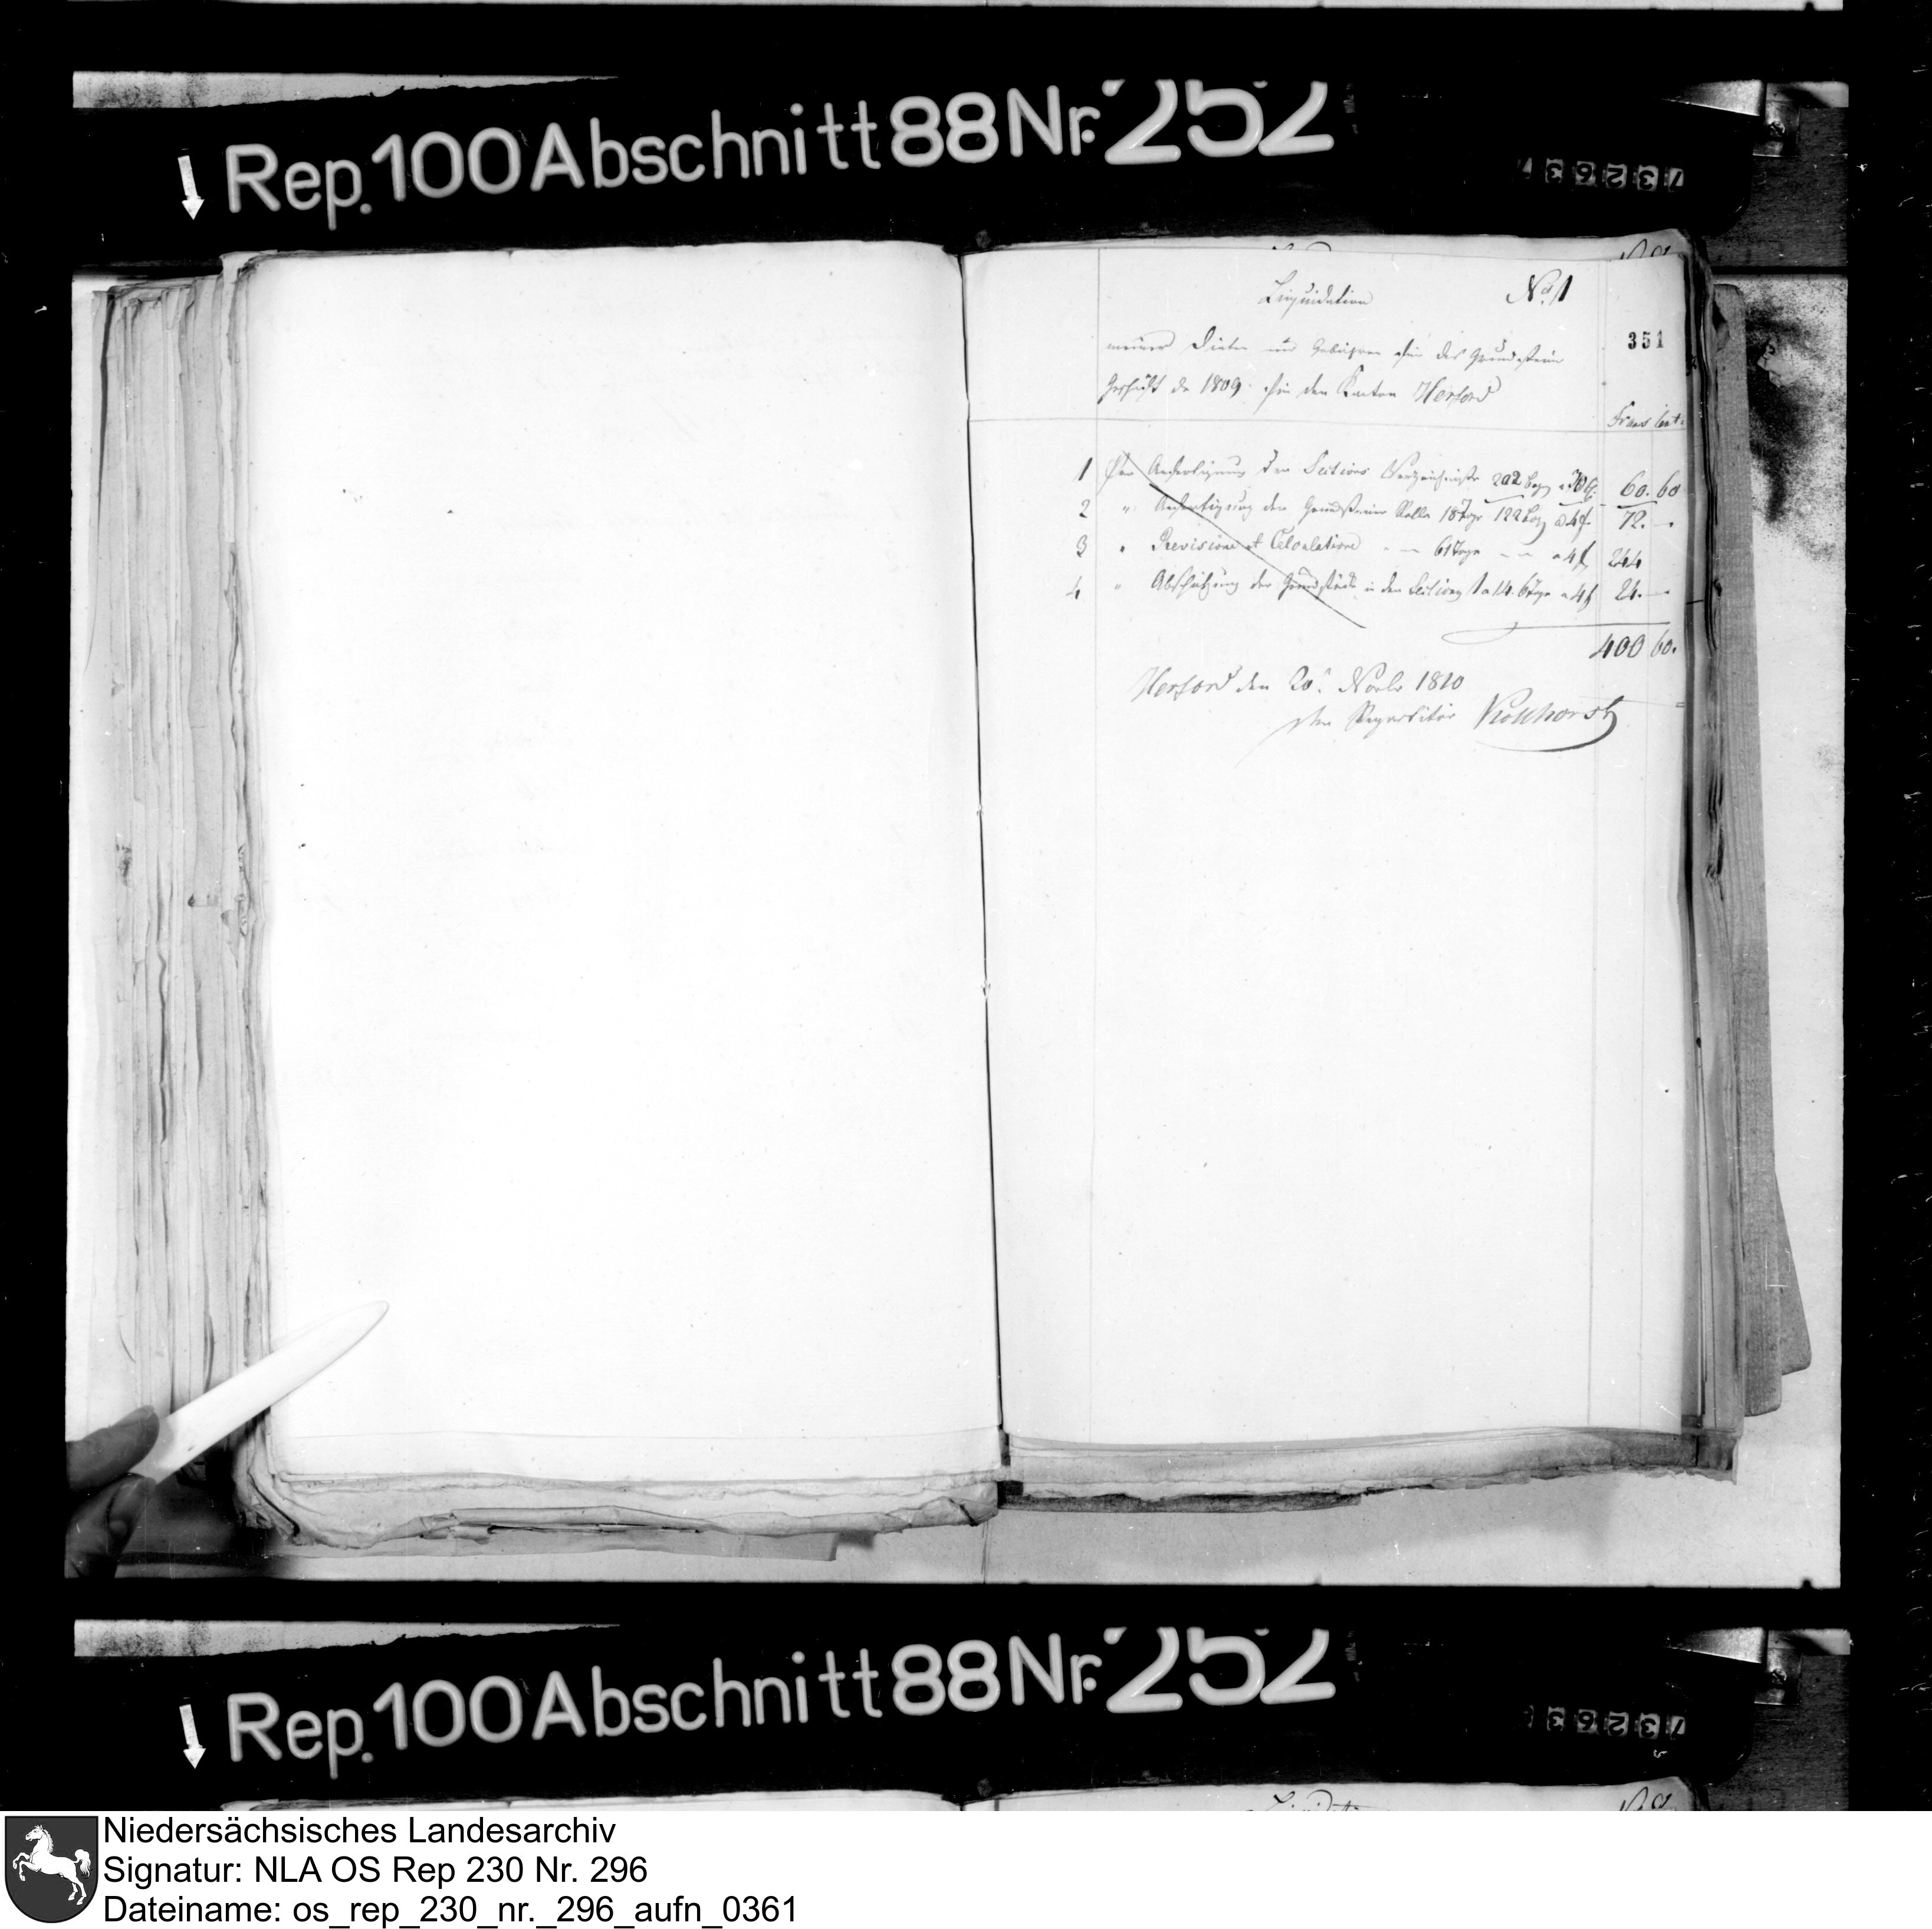 Rep. 100 Abschnitt 88 Nr. 252
732637
Liquidation
No. 1
351
meiner Diäten und Gebühren für das Grundsteuer
Geschäft de 1809 für den Kanton Herford
Francs Cent.
1 Für Anfertigung der Sections Verzeichnisse 202 Bog. a 30 C. 60. 60
2 " Anfertigung der Grundsteuer Rolle 18 Tage 122 Bog. a 4 f. 72. -
3 " Revision et Calculation " - 61 Tage - - a 4 f 244
4 " Abschätzung der Grundstücke in den Sections 1 a 14. 6 Tage a 4 f 24. -
400 60.
Herford den 20t. Novbr 1810
Der Repartitor
Rep. 100 Abschnitt 88 Nr. 252
Niedersächsisches Landesarchiv
Signatur: NLA OS Rep 230 Nr. 296
Dateiname: os_rep_230_nr._296_aufn_0361